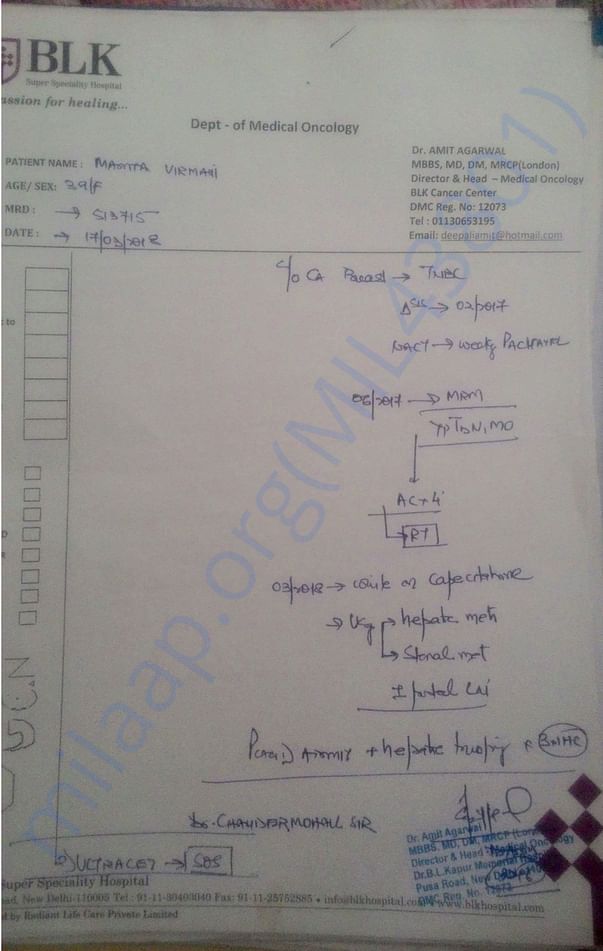 BLK
Super Speciality Hospital
assion for healing...
Dept - of Medical Oncology
Dr. AMIT AGARWAL
MBBS, MD, DM, MRCP(London)
Director & Head – Medical Oncology
BLK Cancer Center
DMC Reg. No: 12073
Tel : 01130653195
Email: deepaliamit@hotmail.com
PATIENT NAME : VIRMANI
AGE/ SEX: 39/F
MRD : → 513715
DATE : → 17/03/2018
to
c/o CA Breast → TNBC
→ 02/2017
NACT → weekly
06/2017 → MRM
N1 M0
AC x 4
→ RT
03/2018 → while on Capecitabine
→ hepatic
→ Sternal met
+ hepatic BMHC
Dr. CHANDERMOHAN SIR
ULTRACET → SOS
Dr. Amit Agarwal
MBBS, MD, DM, MRCP (London)
Director & Head Medical Oncology
Dr.B.L. Kapur Memorial
Pusa Road, New
DMC Reg. No. 12073
Super Speciality Hospital
ad, New Delhi-110005 Tel : 91-11-30403040 Fax: 91-11-25752885 • info@blkhospital.com • www.blkhospital.com
d by Radiant Life Care Private Limited
milaap.org(MIL43801)